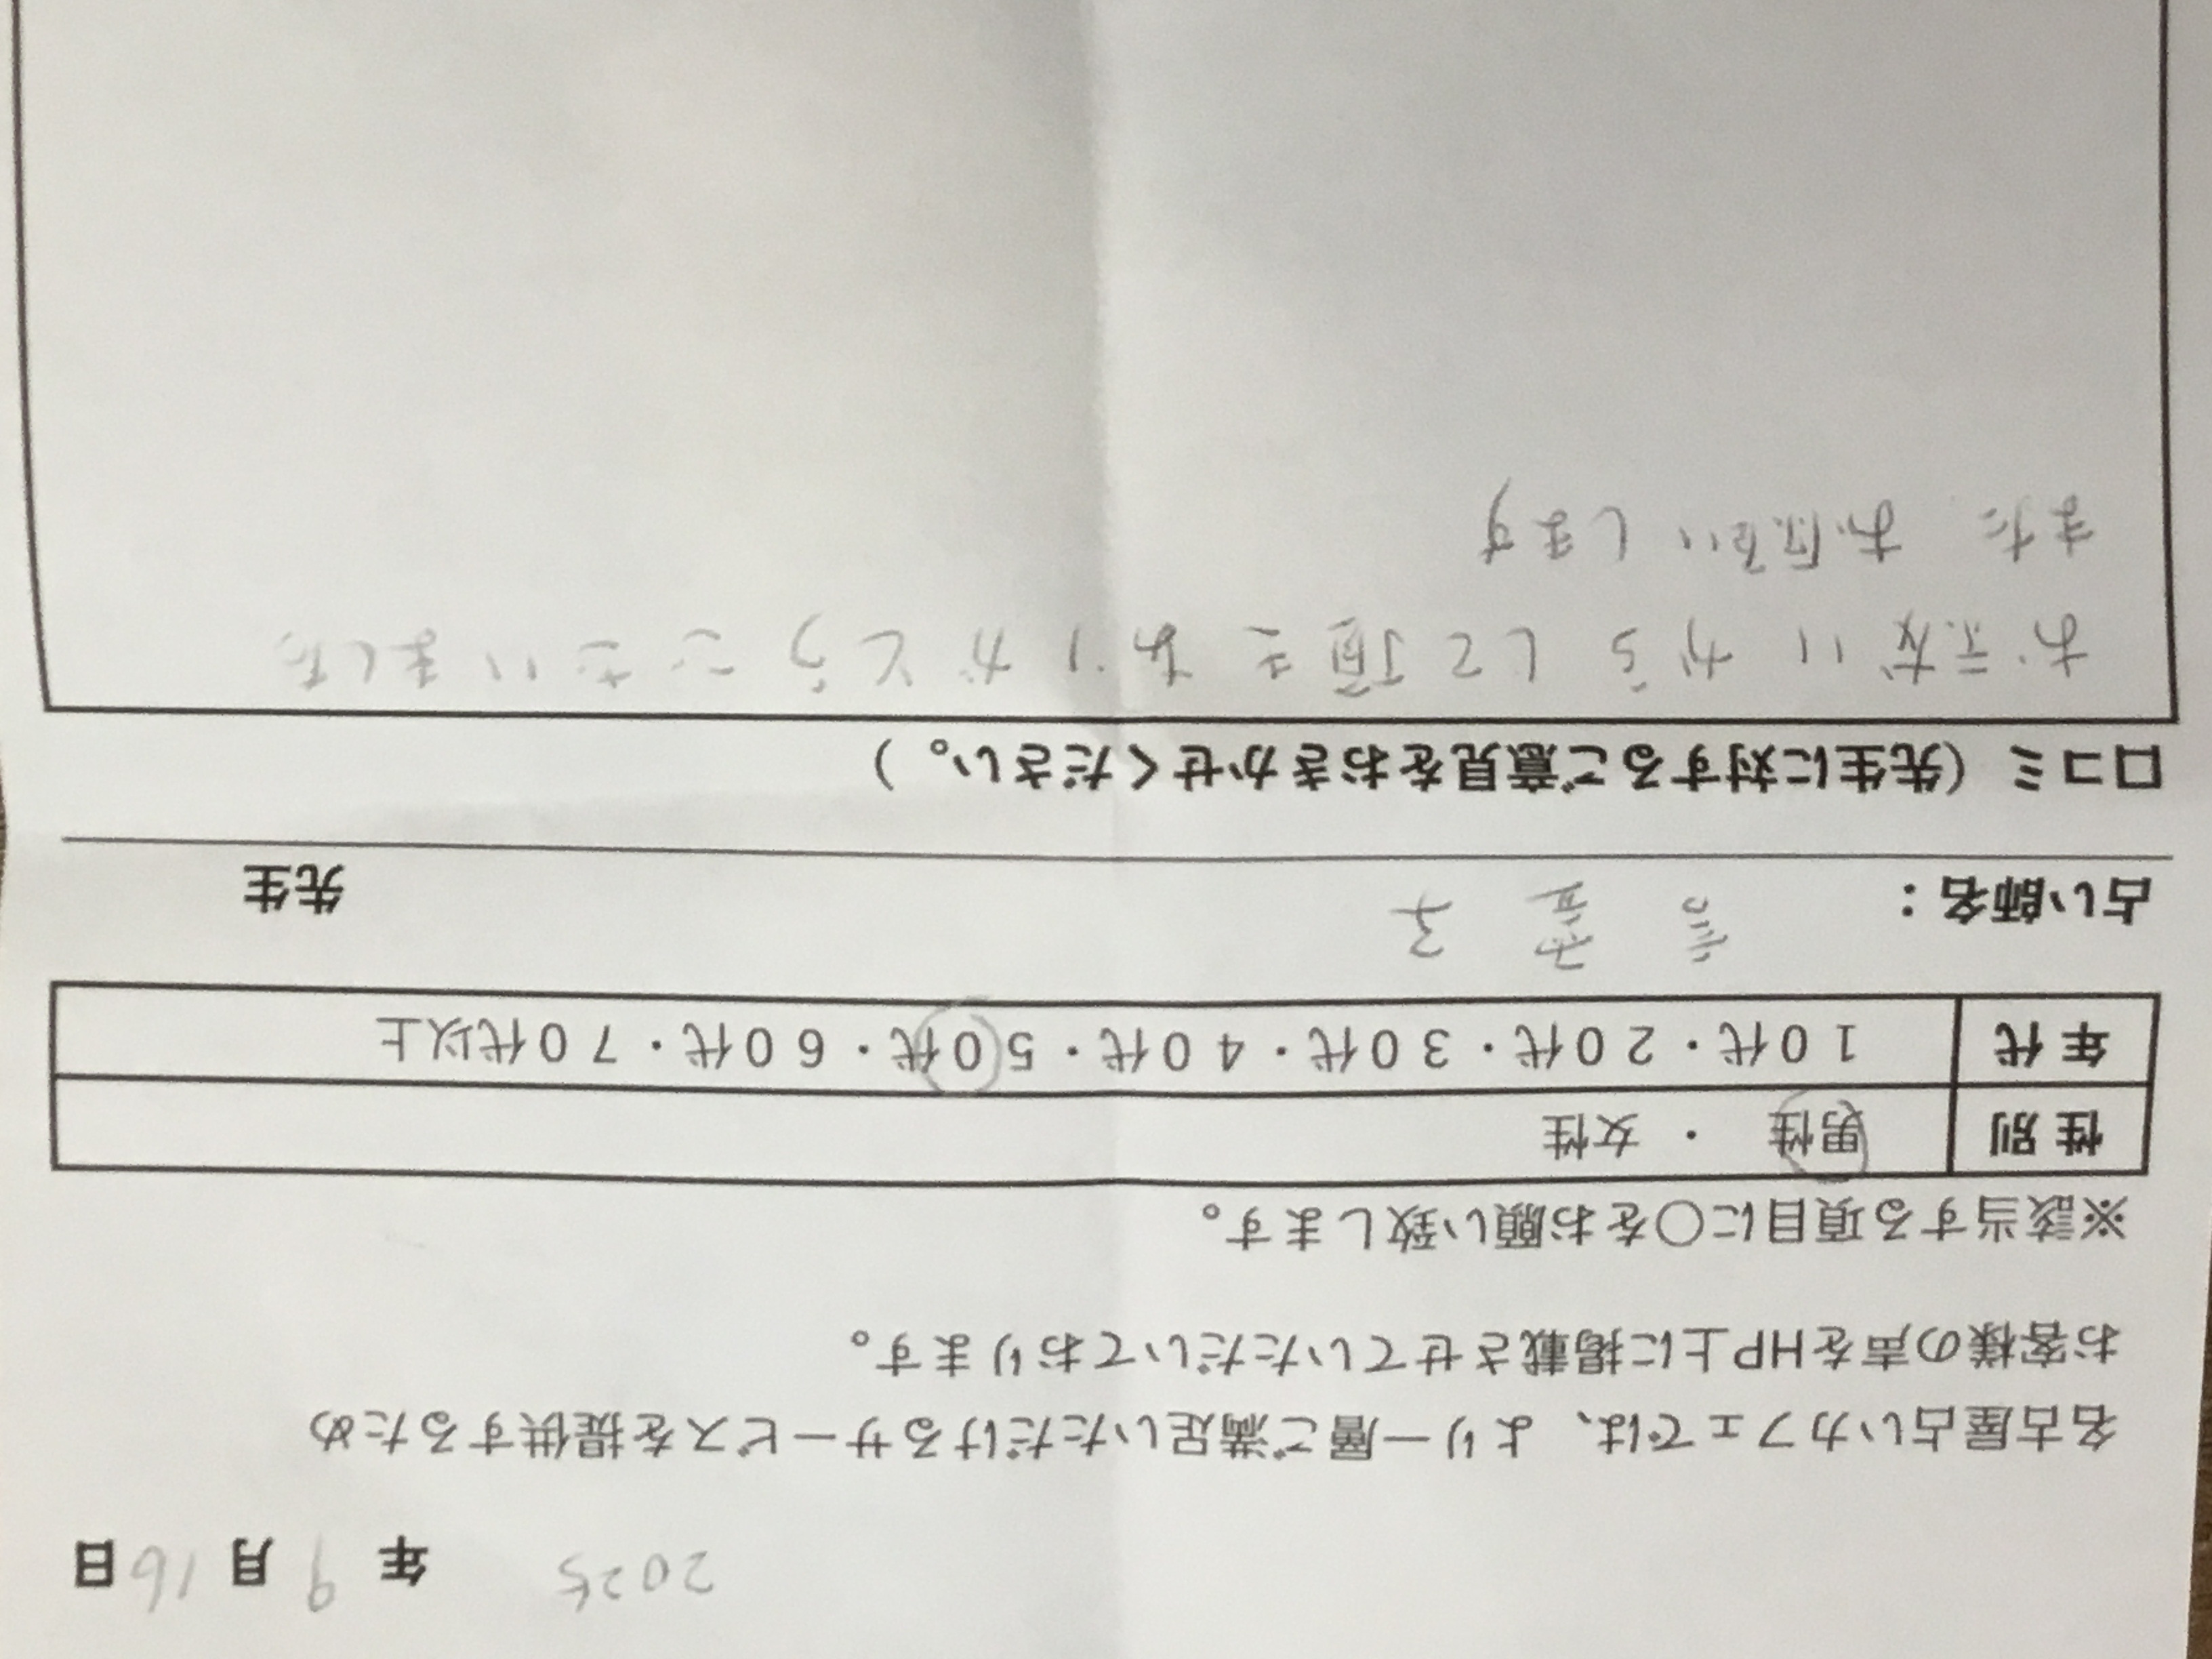 2025年9月16日
名古屋占いカフェでは、より一層ご満足いただけるサービスを提供するため
お客様の声をHP上に掲載させていただいております。
※該当する項目に○をお願い致します。
性別 男性 ・ 女性
年代 10代・20代・30代・40代・50代・60代・70代以上
占い師名： 子 先生
口コミ（先生に対するご意見をおきかせください。）
して頂きありがとうございました
また お願いします